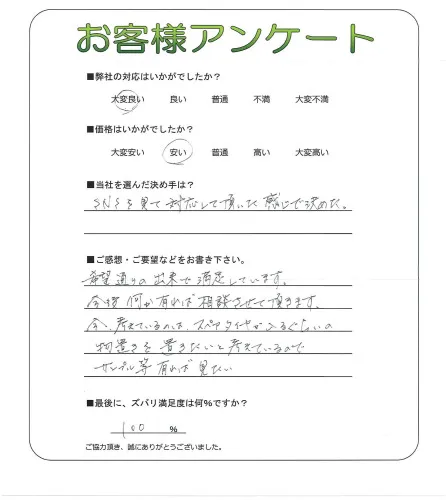 お客様アンケート
■弊社の対応はいかがでしたか?
大変良い 良い 普通 不満 大変不満
■価格はいかがでしたか?
大変安い 安い 普通 高い 大変高い
■当社を選んだ決め手は?
SNSを見て対応して頂いた感じで決めた。
■ご感想・ご要望などをお書き下さい。
希望通りの出来で満足しています。
今後何か有れば相談させて頂きます。
今、考えているのは、スペアタイヤが入るぐらいの
物置きを置きたいと考えているので
サンプル等有れば見たい
■最後に、ズバリ満足度は何%ですか?
100 %
ご協力頂き、誠にありがとうございました。